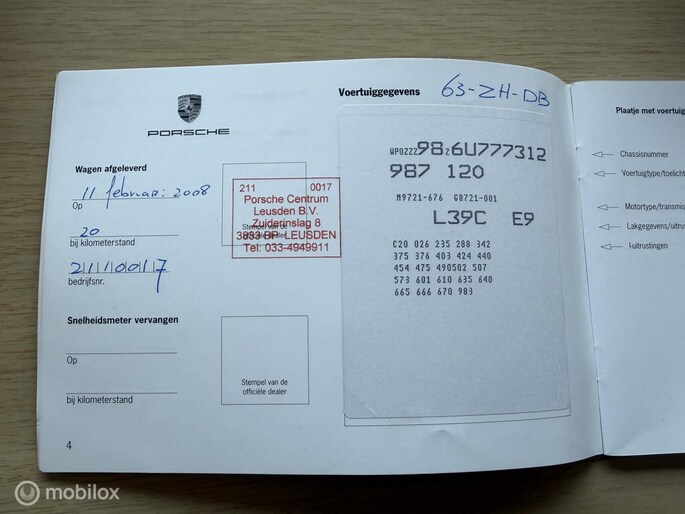 PORSCHE
Wagen afgeleverd
11 februari 2008
Op
20
bij kilometerstand
21110017
bedrijfsnr.
211 0017
Porsche Centrum
Leusden B.V.
Zuiderinslag 8
3833 BP LEUSDEN
Tel: 033-4949911
Stempel van de
Snelheidsmeter vervangen
Op
bij kilometerstand
Stempel van de
officiële dealer
4
Voertuiggegevens 63-ZH-DB
WP0ZZZ98Z6U777312
987 120
M9721-676 G8721-001
L39C E9
C20 026 235 288 342
375 376 403 424 440
454 475 490502 507
573 601 610 635 640
665 666 670 983
Plaatje met voertuig
Chassisnummer
Voertuigtype/toelicht
Motortype/transmis
Lakgegevens/uitru
I-uitrustingen
mobilox